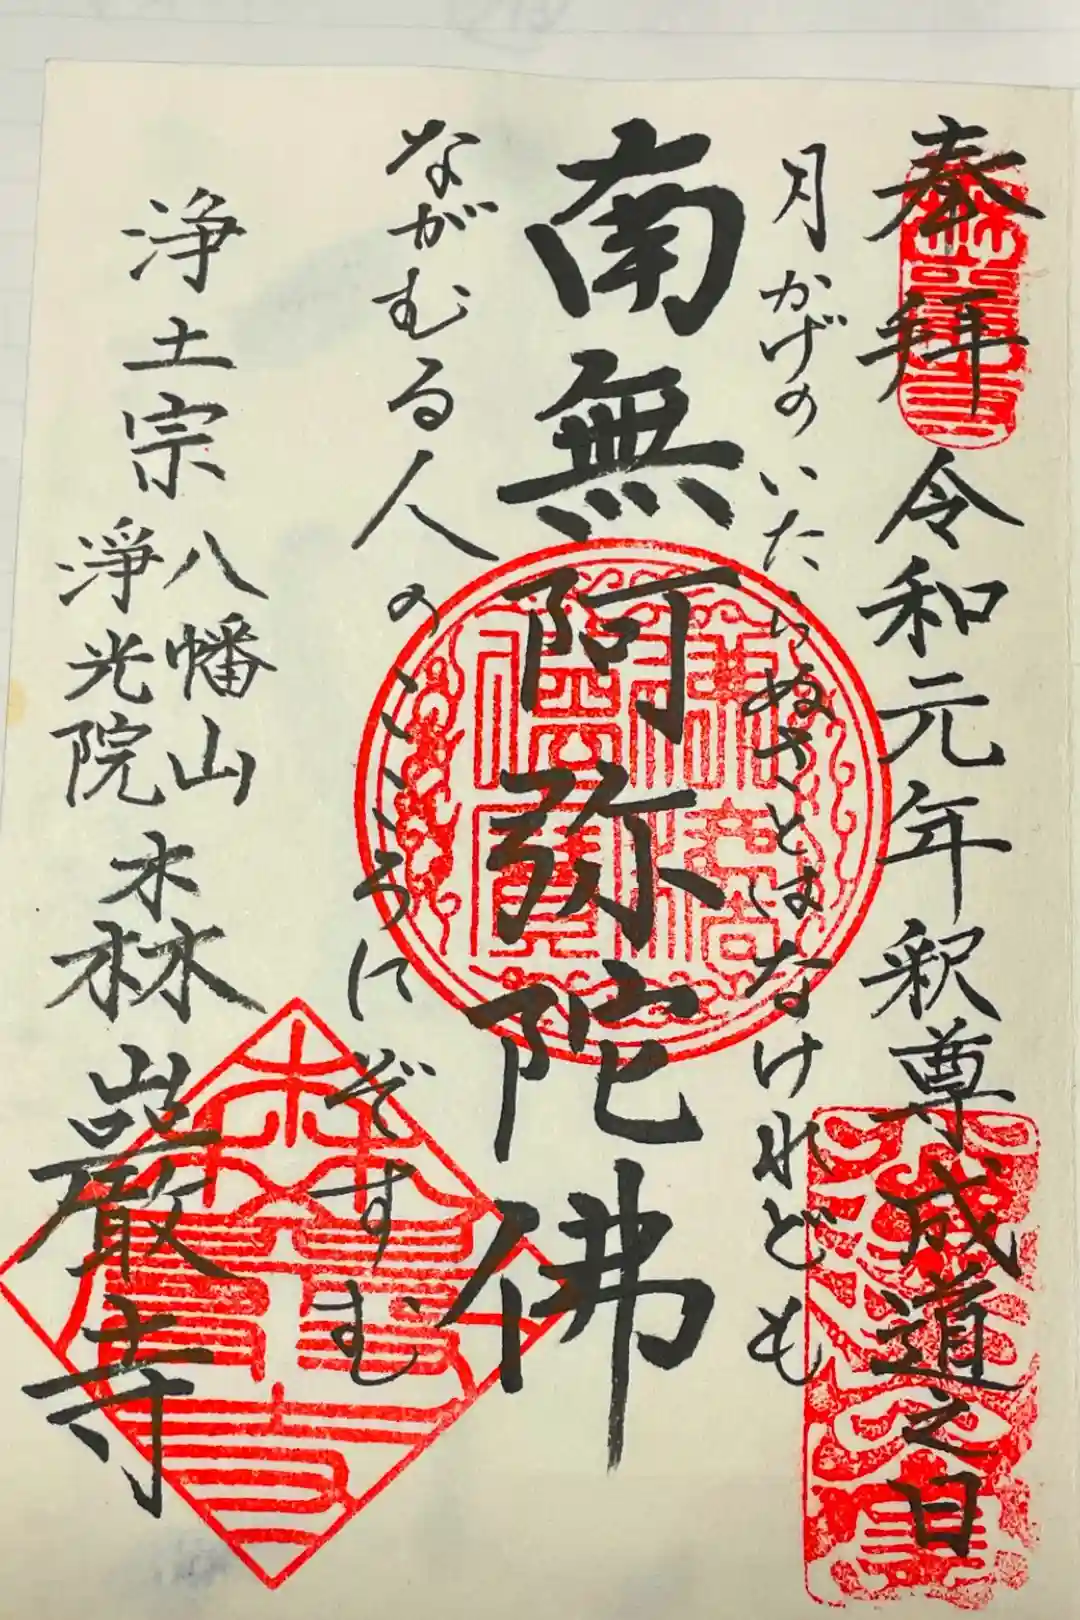 奉拝 令和元年釈尊成道之日
月かげのいたらぬさとはなけれども
南無阿弥陀佛
ながむる人のこころにぞすむ
浄土宗
八幡山
淨光院
森巌寺